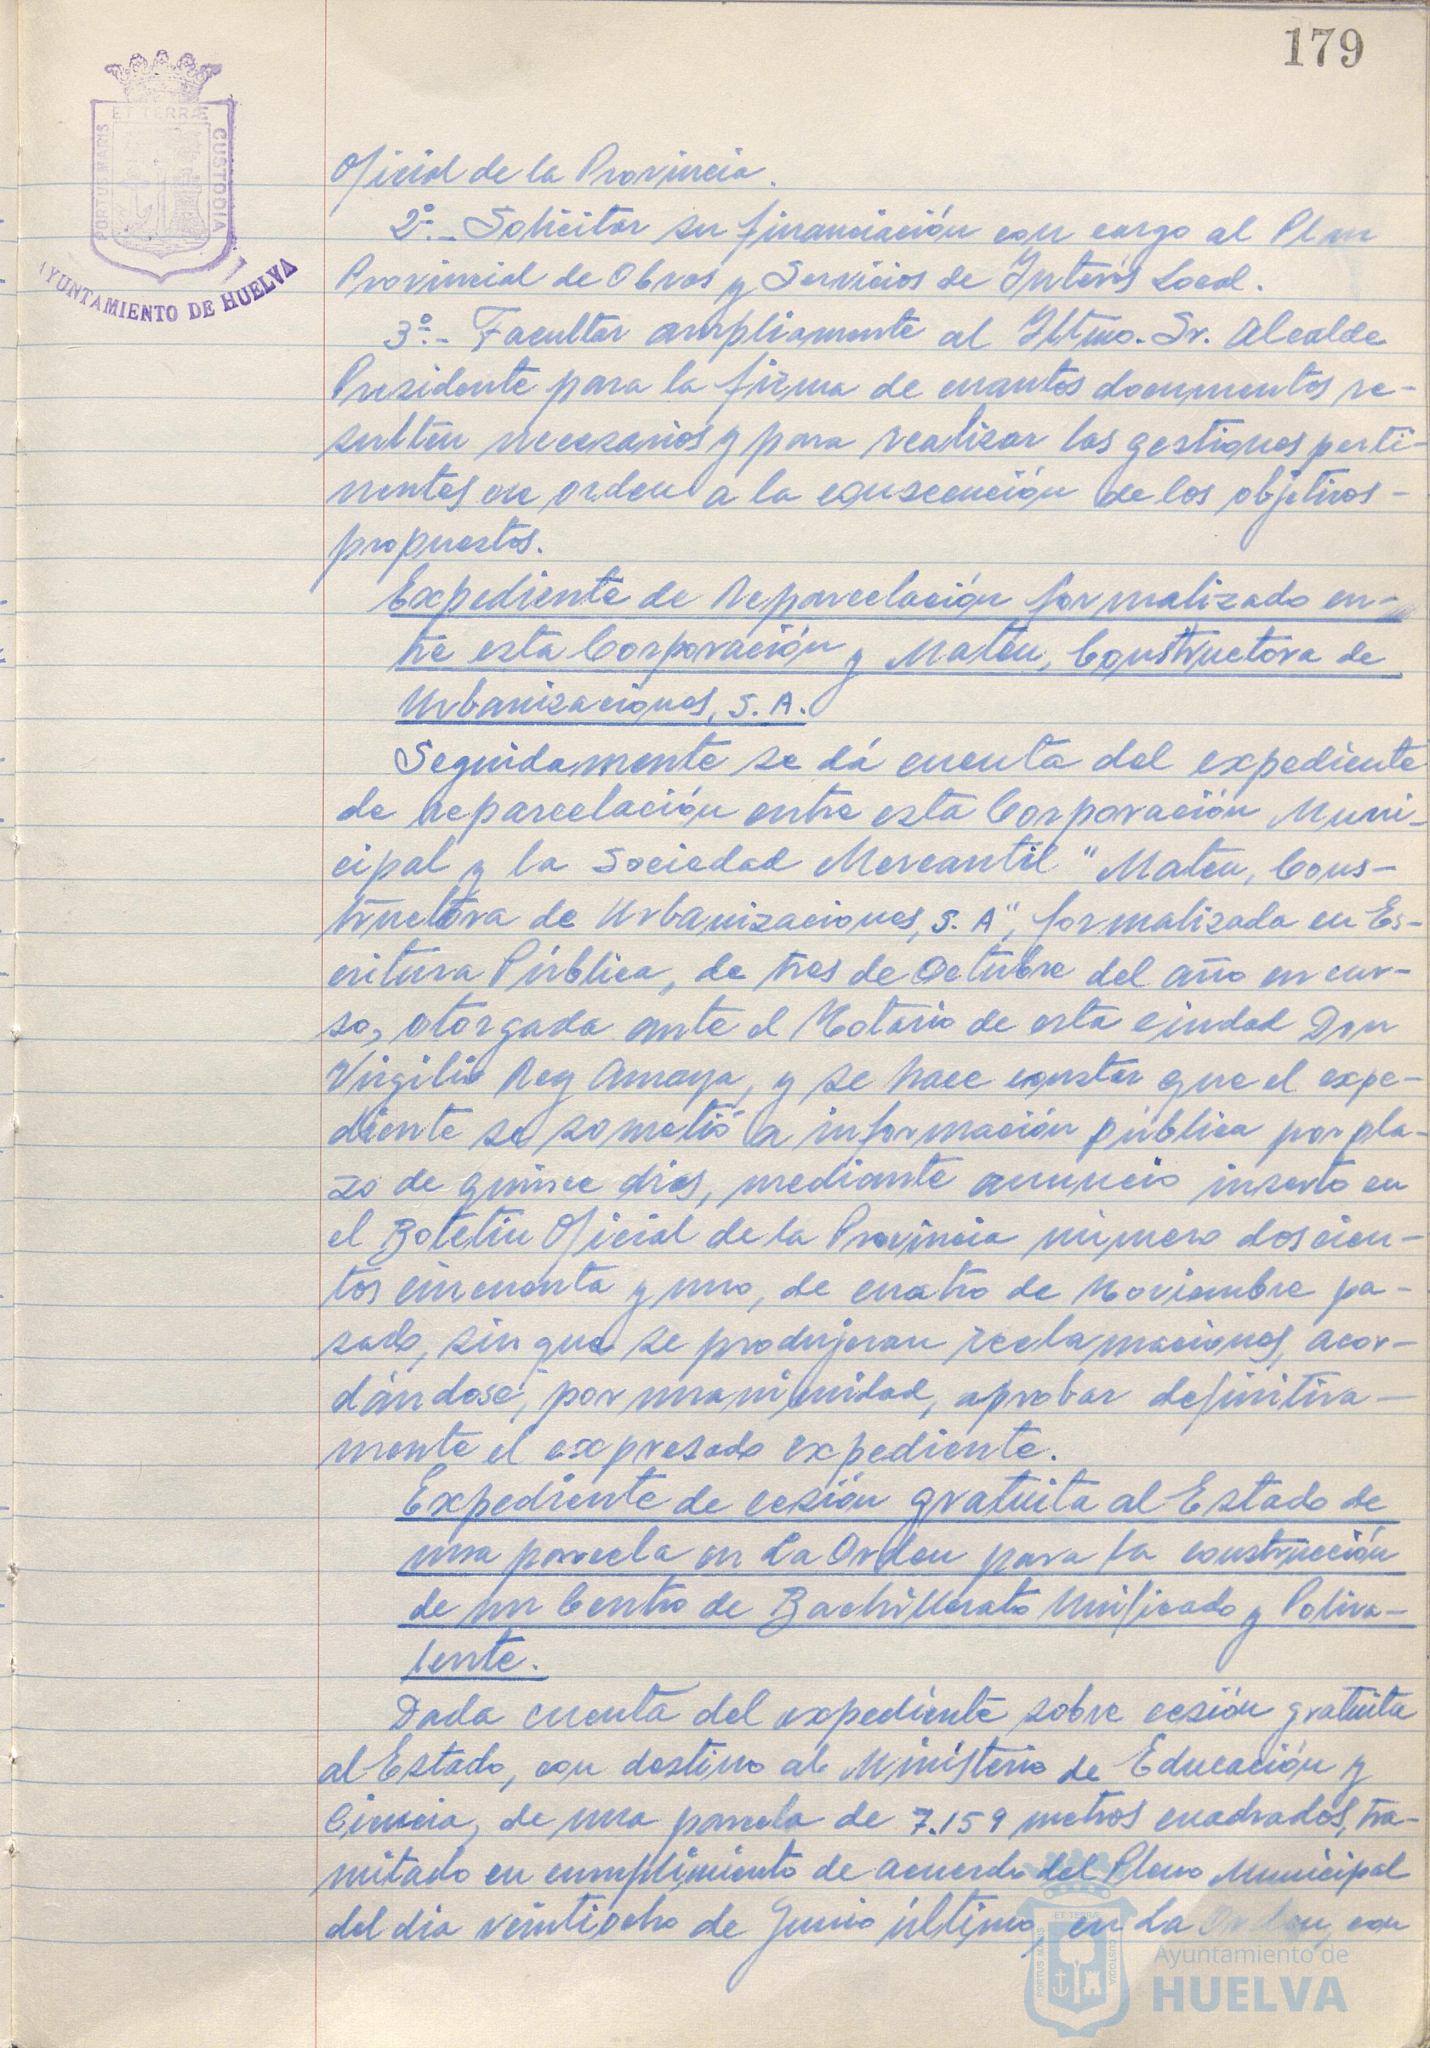 179
ET TERRÆ
PORTUS MARIS
CUSTODIA
AYUNTAMIENTO DE HUELVA
Oficial de la Provincia.
2º.- Solicitar su financiación con cargo al Plan
Provincial de Obras y Servicios de Interés Local.
3º.- Facultar ampliamente al Iltmo. Sr. Alcalde
Presidente para la firma de cuantos documentos re-
sulten necesarios y para realizar las gestiones perti-
nentes en orden a la consecución de los objetivos-
propuestos.
Expediente de Reparcelación formalizado en-
tre esta Corporación y Mateu, Constructora de
Urbanizaciones, S.A.
Seguidamente se dá cuenta del expediente
de reparcelación entre esta Corporación Muni-
cipal y la Sociedad Mercantil "Mateu, Cons-
tructora de Urbanizaciones, S.A", formalizada en Es-
critura Pública, de tres de Octubre del año en cur-
so, otorgada ante el Notario de esta ciudad Don
Virgilio Rey Amaya, y se hace constar que el expe-
diente se sometió a información pública por pla-
zo de quince dias, mediante anuncio inserto en
el Boletin Oficial de la Provincia número doscien-
tos cincuenta y uno, de cuatro de Noviembre pa-
sado, sin que se produjeran reclamaciones, acor-
dándose, por unanimidad, aprobar definitiva-
mente el expresado expediente.
Expediente de cesión gratuita al Estado de
una parcela en La Orden para la construcción
de un Centro de Bachillerato Unificado y Poliva-
lente.
Dada cuenta del expediente sobre cesión gratuita
al Estado, con destino al Ministerio de Educación y
Ciencia, de una parcela de 7.159 metros cuadrados, tra-
mitado en cumplimiento de acuerdo del Pleno Municipal
del dia veintiocho de Junio último, en La Orden, con
ET TERRA
PORTUS MARIS
CUSTODIA
Ayuntamiento de
HUELVA